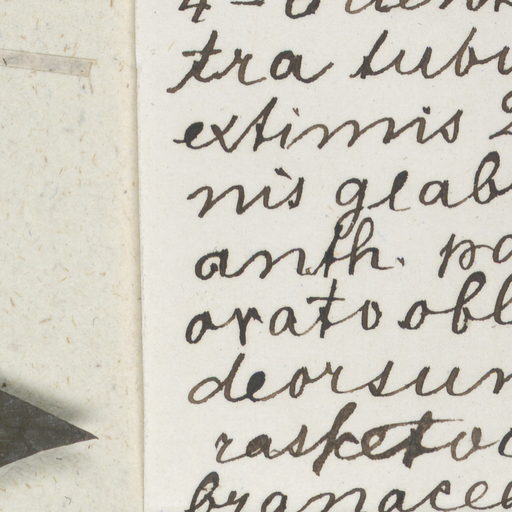 tra tubu
extimis 2
nis glab
anth. pa
ovato obl
deorsum
branacel